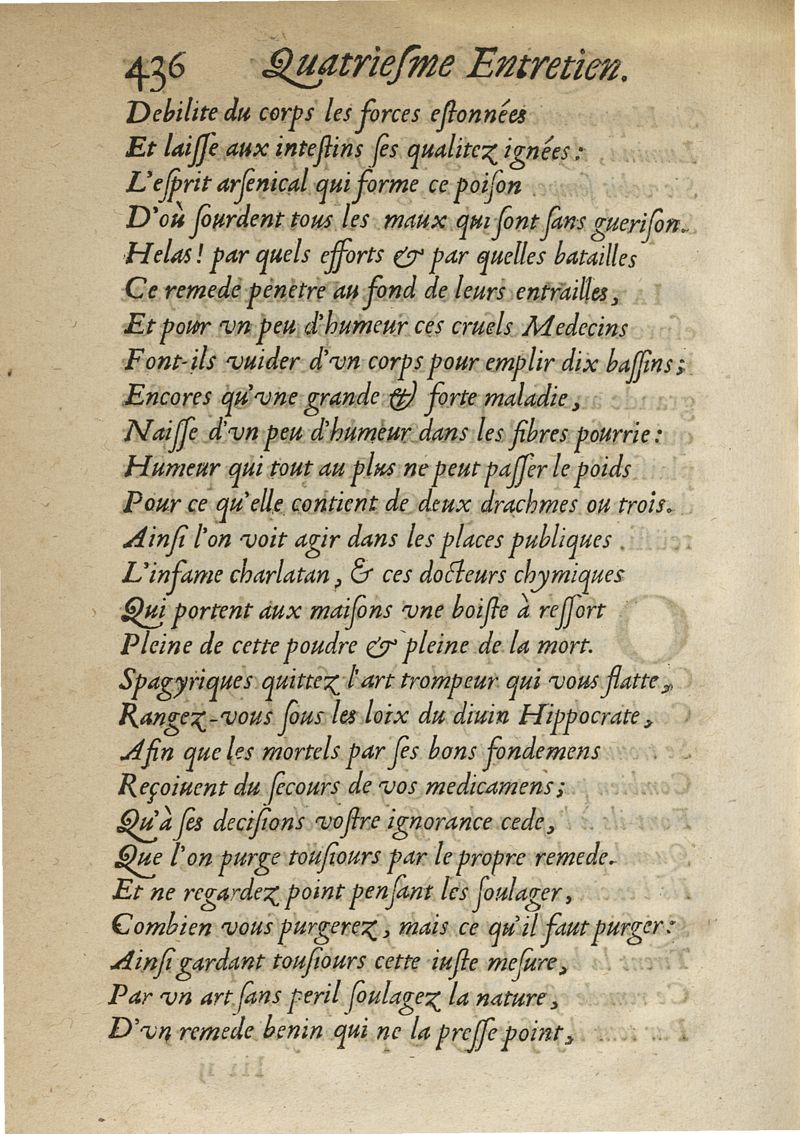 436 Quatrieſme Entretien.
Debilite du corps les forces eſtonnées
Et laiſſe aux inteſtins ſes qualitez ignées :
L'eſprit arſenical qui forme ce poiſon
D'où ſourdent tous les maux qui ſont ſans gueriſon.
Helas ! par quels efforts & par quelles batailles
Ce remede penetre au fond de leurs entrailles,
Et pour vn peu d'humeur ces cruels Medecins
Font-ils vuider d'vn corps pour emplir dix baſſins ;
Encores qu'vne grande & forte maladie,
Naiſſe d'vn peu d'humeur dans les fibres pourrie :
Humeur qui tout au plus ne peut paſſer le poids
Pour ce qu'elle contient de deux drachmes ou trois.
Ainſi l'on voit agir dans les places publiques
L'infame charlatan, & ces docteurs chymiques
Qui portent aux maiſons vne boiſte à reſſort
Pleine de cette poudre & pleine de la mort.
Spagyriques quittez l'art trompeur qui vous flatte,
Rangez-vous ſous les loix du diuin Hippocrate,
Afin que les mortels par ſes bons fondemens
Reçoiuent du ſecours de vos medicamens ;
Qu'à ſes deciſions voſtre ignorance cede,
Que l'on purge touſiours par le propre remede.
Et ne regardez point penſant les ſoulager,
Combien vous purgerez, mais ce qu'il faut purger :
Ainſi gardant touſiours cette iuſte meſure,
Par vn art ſans peril ſoulagez la nature,
D'vn remede benin qui ne la preſſe point,